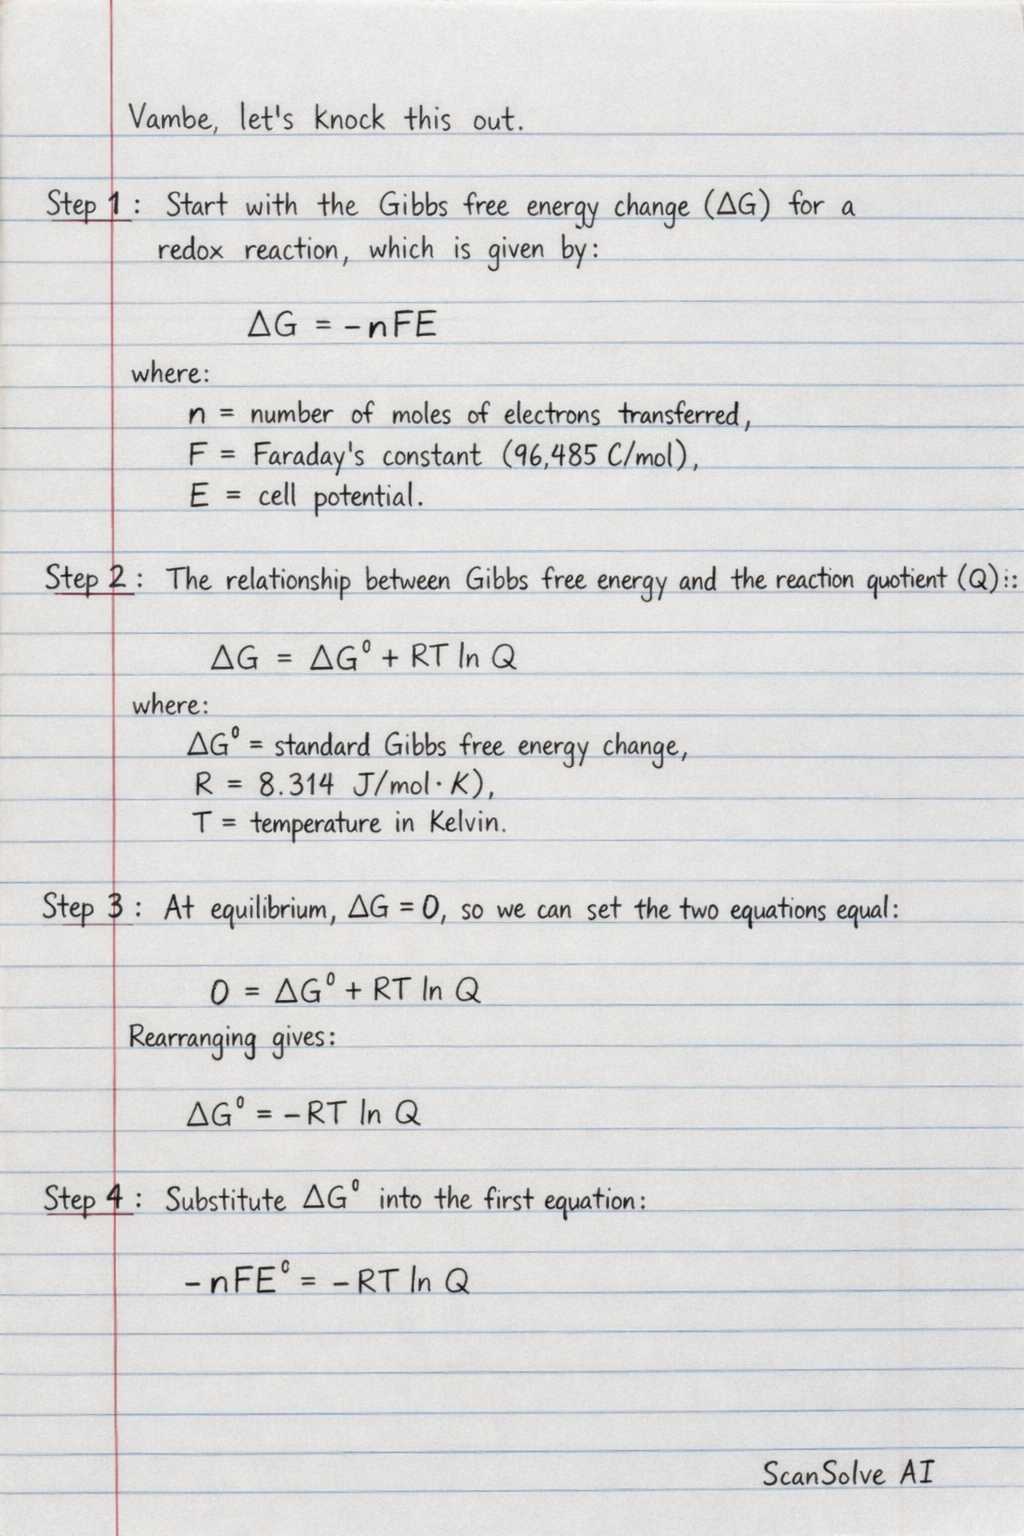 Vambe, let's knock this out.
Step 1: Start with the Gibbs free energy change (ΔG) for a
redox reaction, which is given by:
ΔG = -nFE
where:
n = number of moles of electrons transferred,
F = Faraday's constant (96,485 C/mol),
E = cell potential.
Step 2: The relationship between Gibbs free energy and the reaction quotient (Q)::
ΔG = ΔG⁰ + RT ln Q
where:
ΔG⁰ = standard Gibbs free energy change,
R = 8.314 J/mol·K),
T = temperature in Kelvin.
Step 3: At equilibrium, ΔG = 0, so we can set the two equations equal:
0 = ΔG⁰ + RT ln Q
Rearranging gives:
ΔG⁰ = -RT ln Q
Step 4: Substitute ΔG⁰ into the first equation:
-nFE⁰ = -RT ln Q
ScanSolve AI